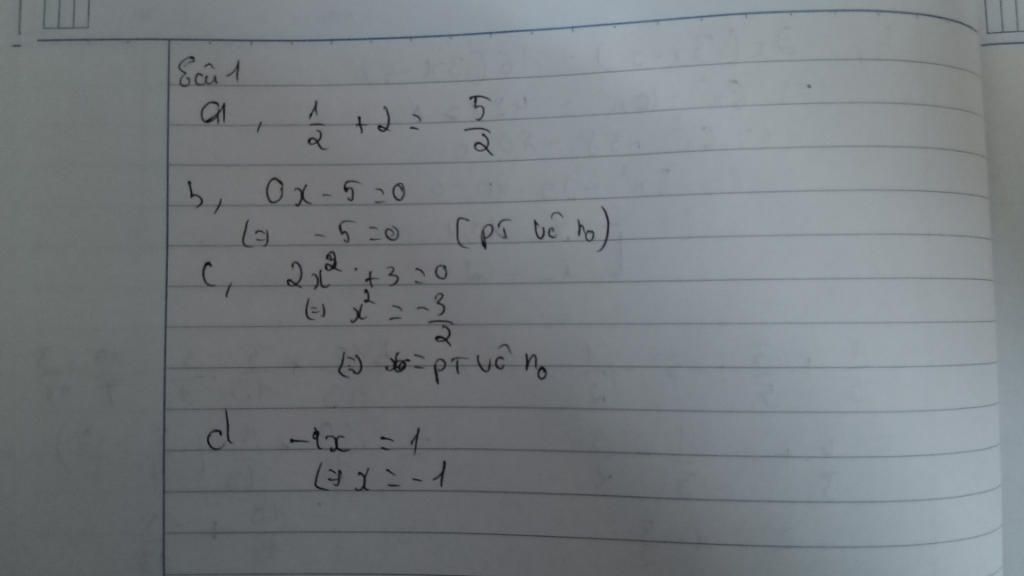 Câu 1
a, 1/2 + 2 = 5/2
b, 0x - 5 = 0
(=) - 5 = 0 (PT vô n0)
c, 2x² + 3 = 0
(=) x² = -3/2
(=) PT vô n0
d -1x = 1
(=) x = -1